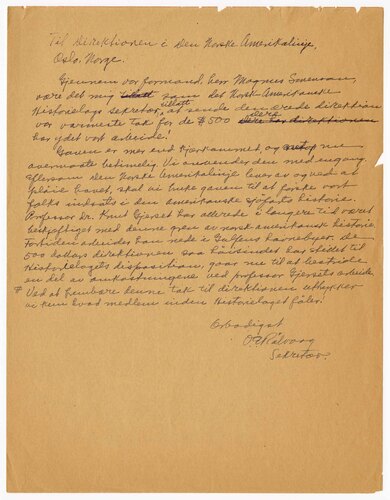 Til Direktionen i Den Norske Amerikalinje,
Oslo, Norge.
Gjennem vor formand, herr Magnus Swenson,
være det mig tilladt som det Norsk-Amerikanske
Historielags sekretær, tilladt at sende den ærede direktion
vor varmeste tak for de $500 dere har direktionen dere
har ydet vort arbeide!
Gaven er mer end kjærkommet, og nu
overmaate betimelig. Vi anvender den med engang.
Eftersom Den Norske Amerikalinje lever av og ved at
pløie havet, skal vi bruke gaven til at forske vort
folks indsats i den amerikanske sjøfarts historie.
Professor Dr. Knut Gjerset har allerede i længere tid været
beskjeftiget med denne gren av norsk-amerikansk historie.
Fortiden arbeider han nede i Golfens havnebyer. De
500 dollars direktionen saa håndt har stedet til
Historielagets disposition, gaar nu til at bestride
en del av omkostningene ved professor Gjersets arbeide.
Ved at frembære denne tak til direktionen uttrykker
vi kun hvad medlem inden Historielaget føler.
Ærbødigst
O. E. Rølvaag
Sekretær.